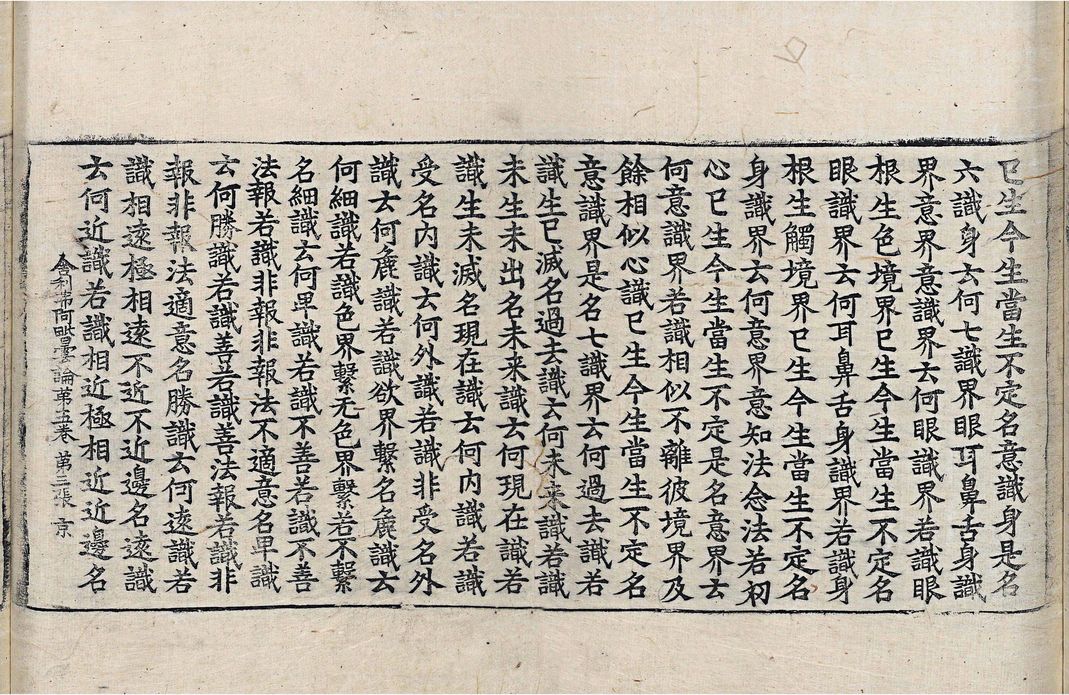 已生今生當生不定名意識身是名
六識身云何七識界眼耳鼻舌身識
界意界意識界云何眼識界若識眼
根生色境界已生今生當生不定名
眼識界云何耳鼻舌身識界若識身
根生觸境界已生今生當生不定名
身識界云何意界意知法念法若初
心已生今生當生不定是名意界云
何意識界若識相似不離彼境界及
餘相似心識已生今生當生不定名
意識界是名七識界云何過去識若
識生已滅名過去識云何未来識若識
未生未出名未来識云何現在識若
識生未滅名現在識云何內識若識
受名內識云何外識若識非受名外
識云何麁識若識欲界繫名麁識云
何細識若識色界繫无色界繫若不繫
名細識云何卑識若識不善若識不善
法報若識非報非報法不適意名卑識
云何勝識若識善若識善法報若識非
報非報法適意名勝識云何遠識若
識相遠極相遠不近不近邊名遠識
云何近識若識相近極相近近邊名
舍利弗阿毗曇論第五卷 第三張 京